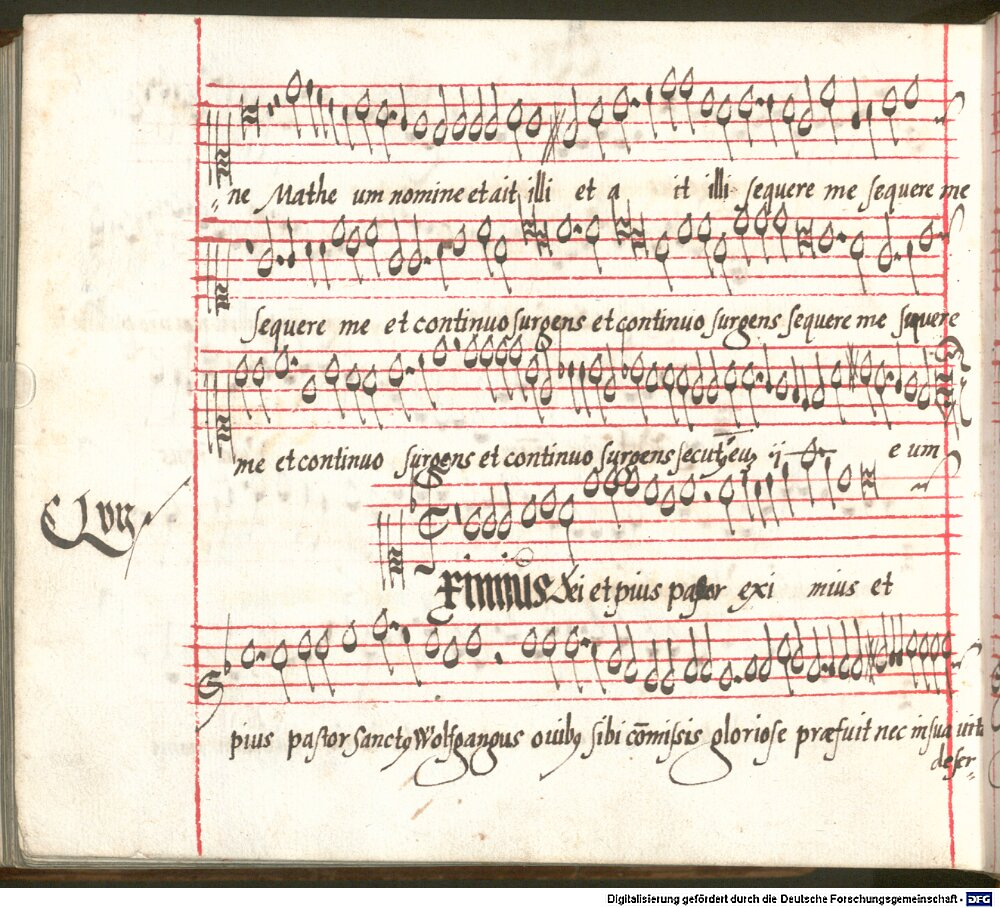 ne Mathe um nomine et ait illi et a it illi sequere me sequere me
sequere me et continuo surgens et continuo surgens sequere me sequere
me et continuo surgens et continuo surgens ij e um
Eximius Dei et pius pastor exi mius et
pius pastor sanctꝰ Wolfgangus ouibꝰ sibi cōmissis gloriose præfuit nec in sua
deser-
Digitalisierung gefördert durch die Deutsche Forschungsgemeinschaft - DFG